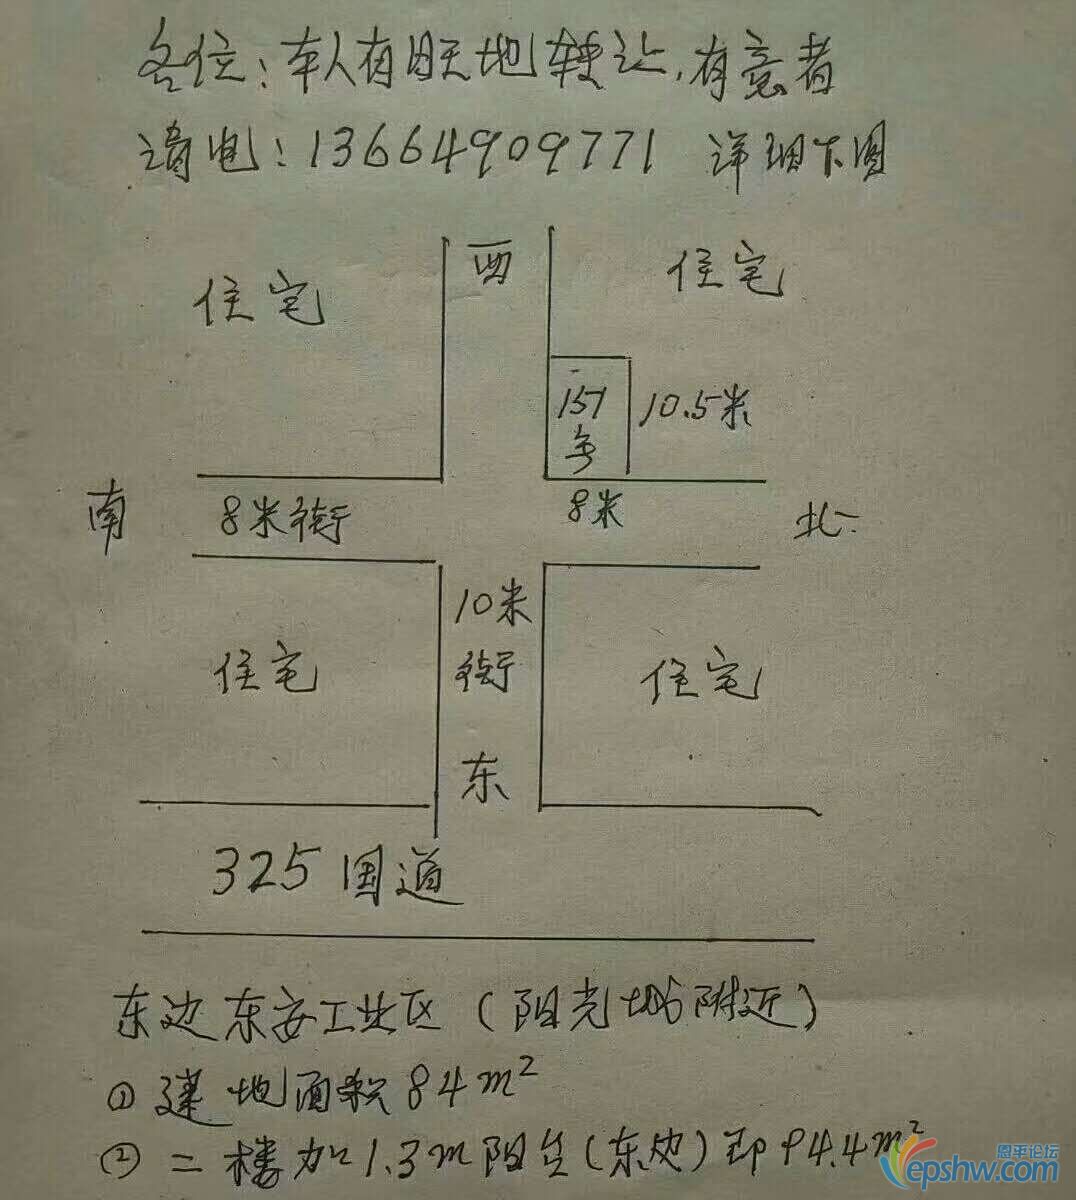 各位：本人有旺地转让，有意者
请电：13664909771 详细下图
西
住宅
住宅
151
号
10.5米
南
8米街
8米
北
10米
街
住宅
住宅
东
325国道
东边东安工业区（阳光城附近）
① 建地面积84m²
② 二楼加1.3m阳台（东边）即94.4m²
恩平论坛
epshw.com